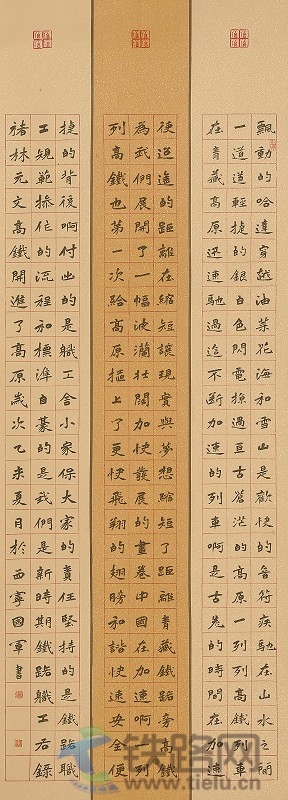 飄動的哈達穿越油菜花海和雪山是歡快的音符疾馳在山水之間
一道道輕捷的銀色閃電掠過亘古蒼茫的高原高鐵列車
在青藏高原迅速馳過這不斷加速的列車啊是古老的時間在加速
使迢遥的距離在縮短讓現實與夢想縮短了距離青藏鐵路高鐵
為我們展開了一幅波瀾壯闊加快發展的畫卷中國在加速啊列
列高鐵也第一次給高原插上了更快飛翔的翅膀和諧快速安全便
捷的背後啊付出的是職工舍小家保大家的責任堅持的是鐵路職
工規範操作的流程和標準自豪的是我們是新時期鐵路職工右錄
褚林元文高鐵開進了高原歲次乙未夏月於西寧國軍書
铁路网
www.tielu.cn